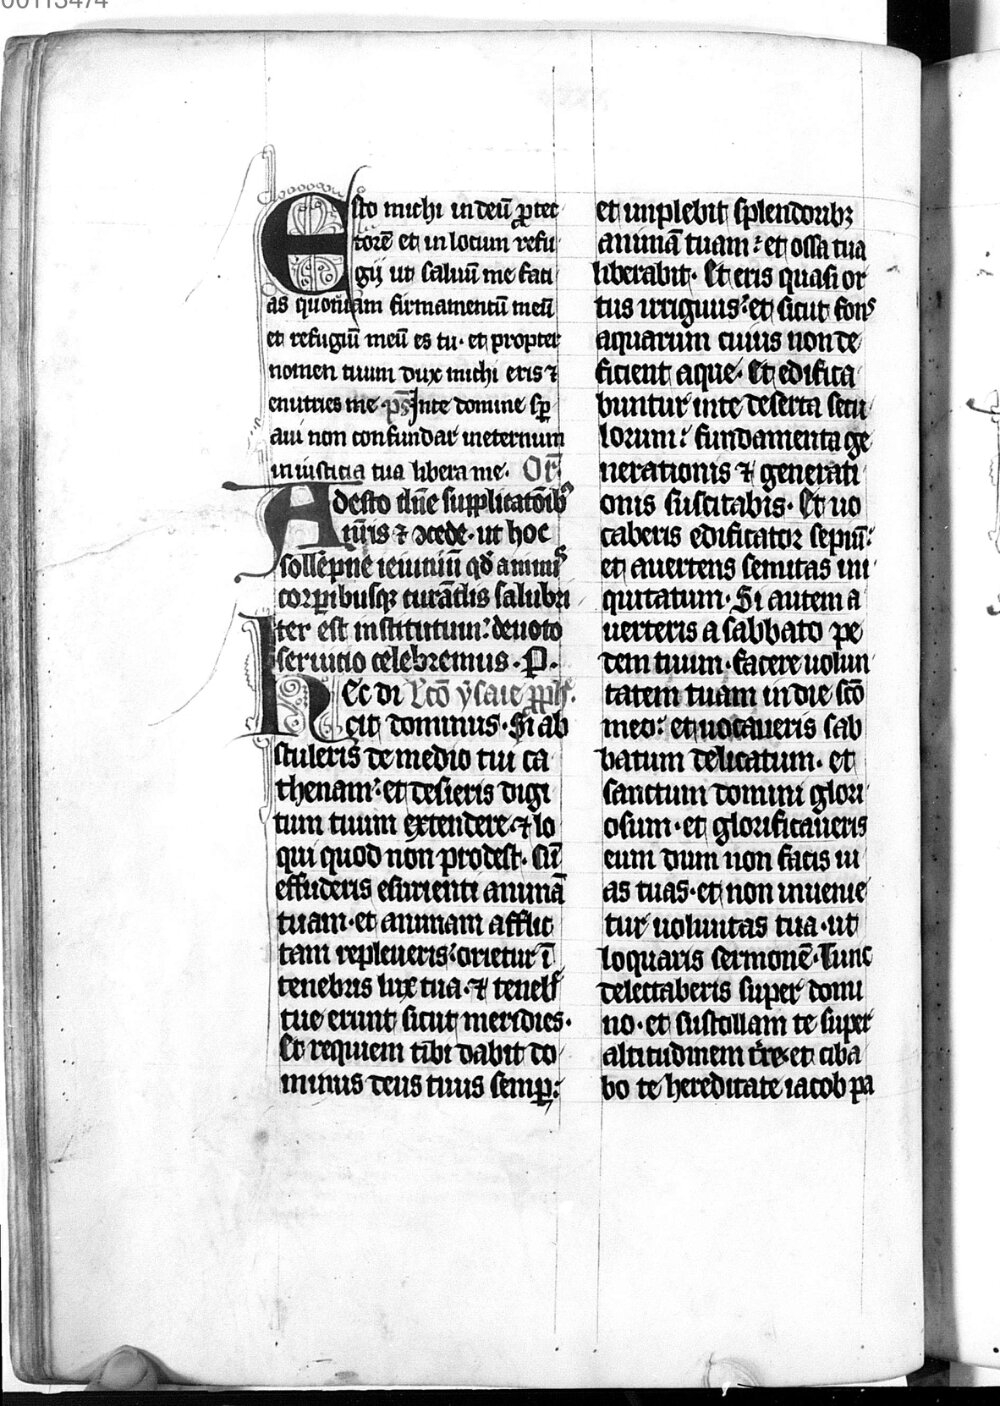 00113474
Esto michi in deū ꝓtec
torē et in locum refu
gij ut saluū me faci
as quoniam firmamentū meū
et refugiū meū es tu· et propter
nomen tuum dux michi eris ⁊
enutries me· ps̄ Jn te domine sp̄
aui non confundar in eternum
in iusticia tua libera me· Or̄
Adesto dn̄e supplicatōib⁹
nr̄is ⁊ ꝯcede· ut hoc
sollēpne ieiuniū qd̄ animis
corꝑibusqꝫ curādis salubri
ter est institutum: deuoto
seruicio celebremus· P·
Hec di Lc̄o ysaie ꝓph̄·
cit dominus· Si ab
stuleris de medio tui ca
thenam: et desieris digi
tum tuum extendere· ⁊ lo
qui quod non prodest· Cū
effuderis esurienti animā
tuam· et animam afflic
tam repleueris: orietur ī
tenebris lux tua· ⁊ teneb̄
tue erunt sicut meridies·
Et requiem tibi dabit do
minus deus tuus semꝑ:
et implebit splendoribꝫ
animā tuam: et ossa tua
liberabit· Et eris quasi or
tus irriguus: et sicut fons
aquarum cuius non de
ficient aque· Et edifica
buntur in te deserta secu
lorum: fundamenta ge
nerationis ⁊ generati
onis suscitabis· Et uo
caberis edificator sepiū:
et auertens semitas ini
quitatum· Si autem a
uerteris a sabbato pe
dem tuum· facere uolun
tatem tuam in die sc̄o
meo: et uocaueris sab
batum delicatum· et
sanctum domini glori
osum· et glorificaueris
eum dum non facis ui
as tuas· et non inuenie
tur uoluntas tua· ut
loquaris sermonē· Tunc
delectaberis super domi
no· et sustollam te super
altitudinem tr̄e· et ciba
bo te hereditate iacob pa